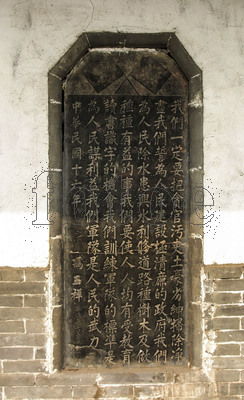 我們一定要把貪官污吏土豪劣紳掃除淨
盡我們誓為人民建設極清廉的政府我們
為人民除水患興水利修道路種樹木及做
種種有益的事我們要使人人均有受教育
讀書識字的機會我們訓練軍隊的標準是
為人民謀利益我們軍隊是人民的武力
中華民國十六年 馮玉祥